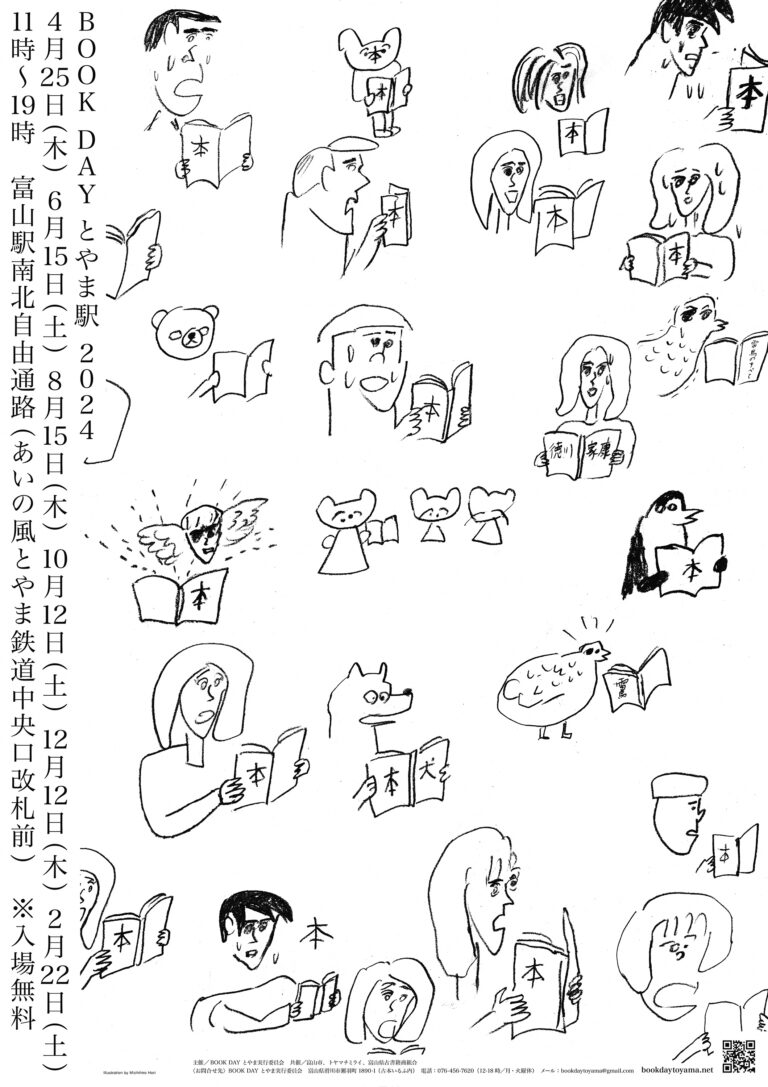 BOOK DAY とやま駅 2024
4月25日(木) 6月15日(土) 8月15日(木) 10月12日(土) 12月12日(木) 2月22日(土)
11時〜19時 富山駅南北自由通路(あいの風とやま鉄道中央口改札前) ※入場無料
本
本
本
本
本
本
本
本
本
雷鳥のすべて
徳川 家康
本
本
雷鳥
本
本 犬
本
本
本
本
主催／BOOK DAY とやま実行委員会 共催／富山市、トヤマチミライ、富山県古書籍商組合
〈お問合せ先〉BOOK DAY とやま実行委員会 富山県滑川市瀬羽町 1890-1（古本いるふ内） 電話：076-456-7620（12-18 時／月・火曜休） メール：bookdaytoyama@gmail.com
bookdaytoyama.net
Illustration by Michihiro Hori